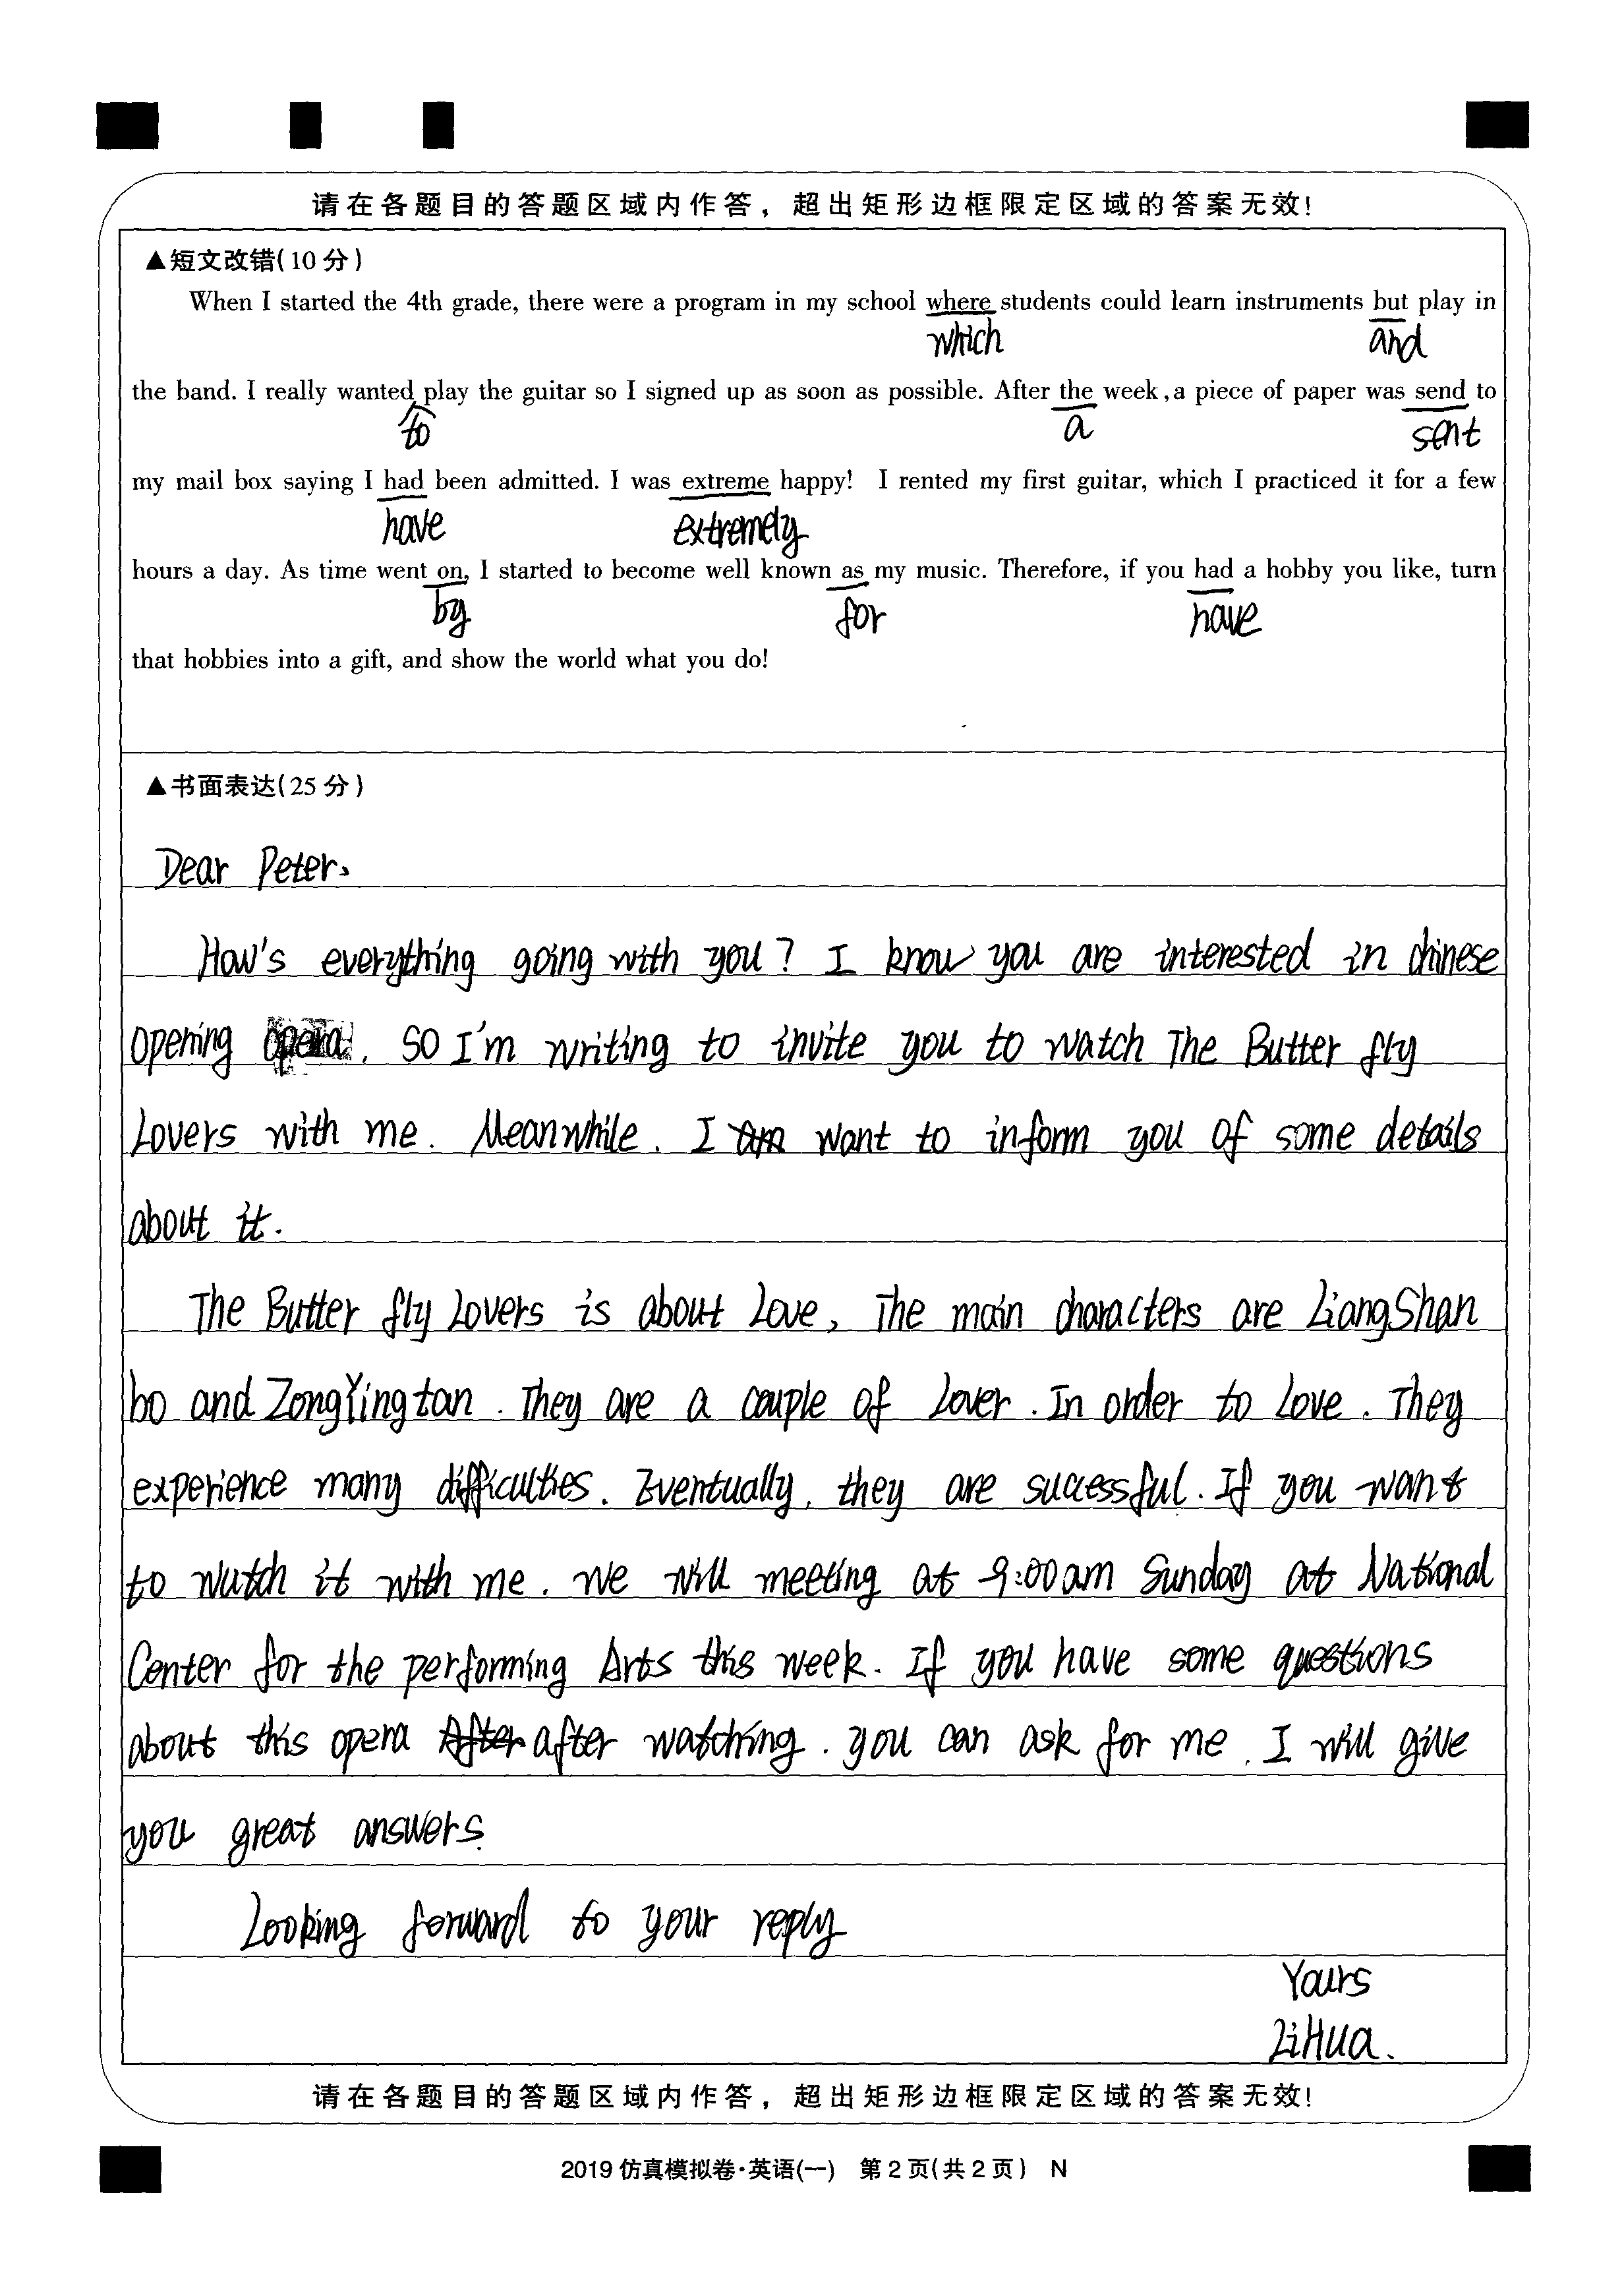 请在各题目的答题区域内作答，超出矩形边框限定区域的答案无效！
▲短文改错(10分)
When I started the 4th grade, there were a program in my school where students could learn instruments but play in
which and
the band. I really wanted play the guitar so I signed up as soon as possible. After the week, a piece of paper was send to
to a sent
my mail box saying I had been admitted. I was extreme happy! I rented my first guitar, which I practiced it for a few
have extremely
hours a day. As time went on, I started to become well known as my music. Therefore, if you had a hobby you like, turn
by for have
that hobbies into a gift, and show the world what you do!
▲书面表达(25分)
Dear Peter、
How's everything going with you? I know you are interested in chinese
opening opera. SO I'm writing to invite you to watch The Butter fly
Lovers with me. Meanwhile. I am want to inform you of some details
about it.
The Butter fly Lovers is about Love, The main characters are LiangShan
bo and ZongYing tan. They are a couple of Lover. In order to Love. They
experience many difficulties. Eventually, they are successful. If you want
to wutch it with me. We will meeting at 9:00am Sunday at National
Center for the performing Arts this week. If you have some questions
about this opera After after watching. you can ask for me. I will give
you great answers.
Looking forward to your reply
Yours
LiHua.
请在各题目的答题区域内作答，超出矩形边框限定区域的答案无效！
2019仿真模拟卷·英语(一) 第2页(共2页) N